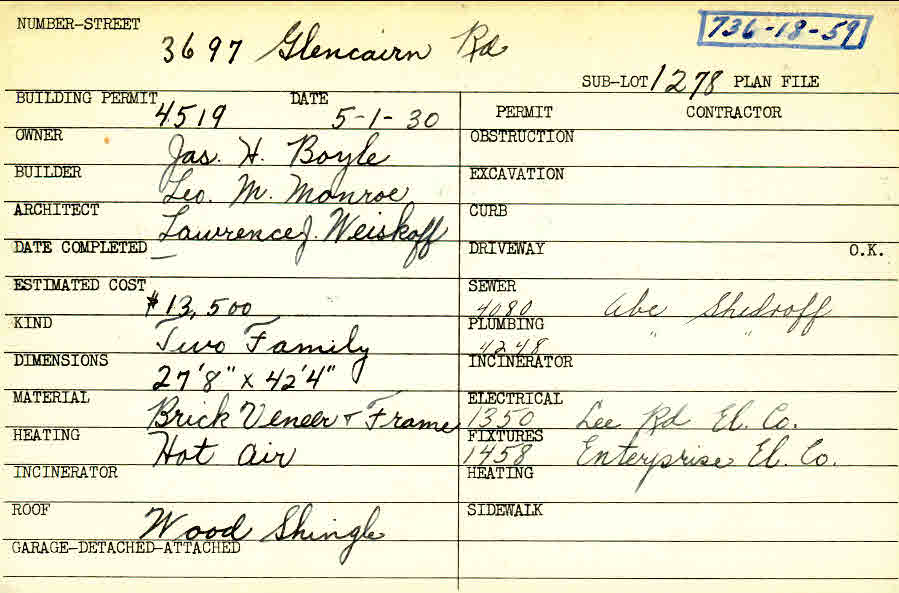 NUMBER-STREET
3697 Glencairn Rd
736-18-59
SUB-LOT 1278 PLAN FILE
BUILDING PERMIT 4519 DATE 5-1-30
PERMIT CONTRACTOR
OWNER Jas. H. Boyle
OBSTRUCTION
BUILDER Leo. M. Monroe
EXCAVATION
ARCHITECT Lawrence J. Weiskoff
CURB
DATE COMPLETED —
DRIVEWAY O.K.
ESTIMATED COST $13,500
SEWER 4080 Abe Shedroff
KIND Two Family
PLUMBING 4248 " "
DIMENSIONS 27'8" x 42'4"
INCINERATOR
MATERIAL Brick Veneer & Frame
ELECTRICAL 1350 Lee Rd El. Co.
HEATING Hot Air
FIXTURES 1458 Enterprise El. Co.
INCINERATOR
HEATING
ROOF Wood Shingle
SIDEWALK
GARAGE-DETACHED-ATTACHED